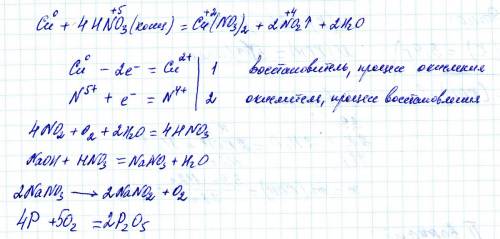 Cu⁰ + 4HN⁺⁵O₃(конц) = Cu⁺²(NO₃)₂ + 2N⁺⁴O₂↑ + 2H₂O
Cu⁰ − 2e⁻ = Cu²⁺ | 1 восстановитель, процесс окисления
N⁵⁺ + e⁻ = N⁴⁺ | 2 окислитель, процесс восстановления
4NO₂ + O₂ + 2H₂O = 4HNO₃
NaOH + HNO₃ = NaNO₃ + H₂O
2NaNO₃ ⟶ 2NaNO₂ + O₂
4P + 5O₂ = 2P₂O₅